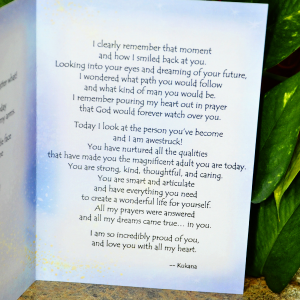 I clearly remember that moment
and how I smiled back at you.
Looking into your eyes and dreaming of your future,
I wondered what path you would follow
and what kind of man you would be.
I remember pouring my heart out in prayer
that God would forever watch over you.
Today I look at the person you've become
and I am awestruck!
You have nurtured all the qualities
that have made you the magnificent adult you are today.
You are strong, kind, thoughtful, and caring.
You are smart and articulate
and have everything you need
to create a wonderful life for yourself.
All my prayers were answered
and all my dreams came true… in you.
I am so incredibly proud of you,
and love you with all my heart.
— Kukana